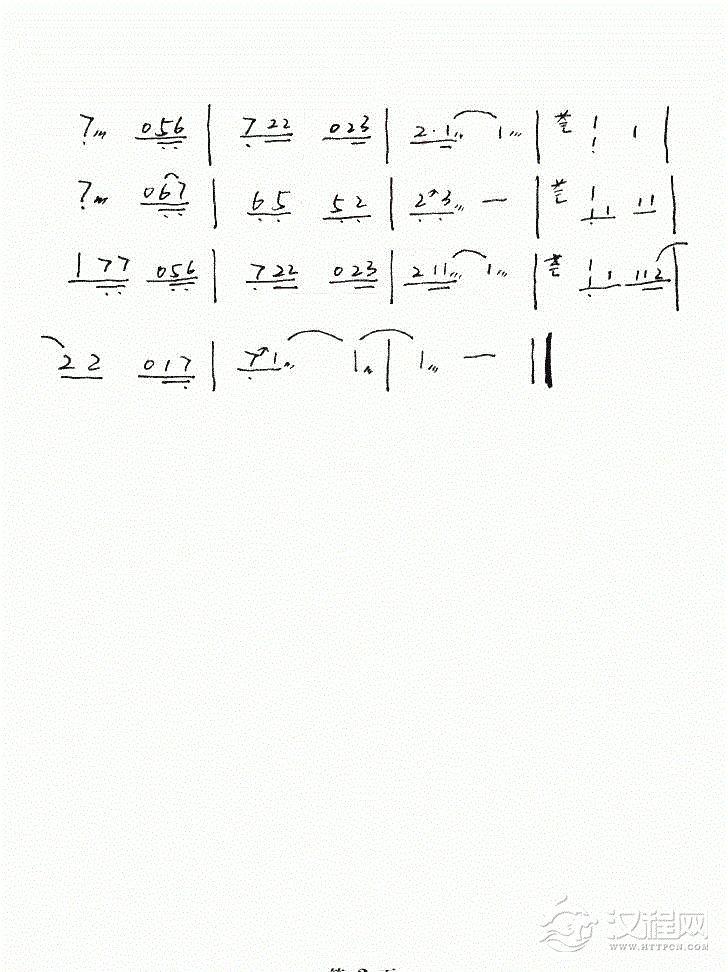 7 056 | 7 22 023 | 2·1 1 | 1 1
7 067 | 65 52 | 2 3 — | 11 11
1 77 056 | 7 22 023 | 2 11 1 | 11 112 |
22 017 | 7 1 1 | 1 — ||
汉程网
HTTPCN.COM